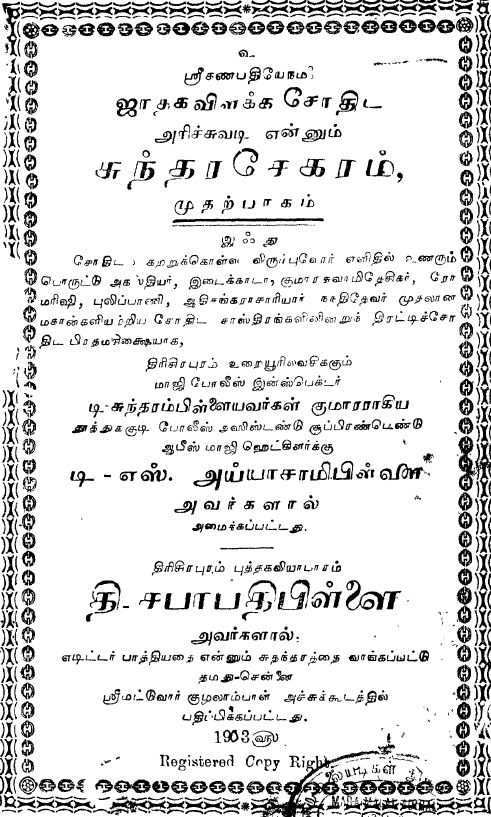 உ
ஸ்ரீகணபதியேநம
ஜாதகவிளக்க சோதிட
அரிச்சுவடி என்னும்
சுந்தரசேகரம்,
முதற்பாகம்
இஃது
சோதிட கற்றுக்கொள்ள விரும்புவோர் எளிதில் உணரும்
பொருட்டு அகஸ்தியர், இடைக்காடர், குமாரசுவாமிதேசிகர், ரோ
மரிஷி, புலிப்பாணி, ஆதிசங்கராசாரியார் நந்திதேவர் முதலான
மகான்களியற்றிய சோதிட சாஸ்திரங்களினின்றுந் திரட்டிச்சோ
திட பிரதமசிக்ஷையாக,
திரிசிரபுரம் உறையூரிலவசிக்கும்
மாஜி போலீஸ் இன்ஸ்பெக்டர்
டி-சுந்தரம்பிள்ளையவர்கள் குமாரராகிய
தூத்துக்குடி போலீஸ் அஸிஸ்டண்டு சூப்பிரண்டெண்டு
ஆபீஸ் மாஜி ஹெட்கிளர்க்கு
டி - எஸ். அய்யாசாமிபிள்ளை
அவர்களால்
அமைக்கப்பட்டது.
திரிசிரபுரம் புத்தகவியாபாரம்
தி-சபாபதிபிள்ளை
அவர்களால்.
எடிட்டர் பாத்தியதை என்னும் சுதந்தரத்தை வாங்கப்பட்டு
தமது-சென்னை
ஸ்ரீமட்வோர் குழலாம்பாள் அச்சுக்கூடத்தில்
பதிப்பிக்கப்பட்டது.
1903 ௵
Registered Copy Right.